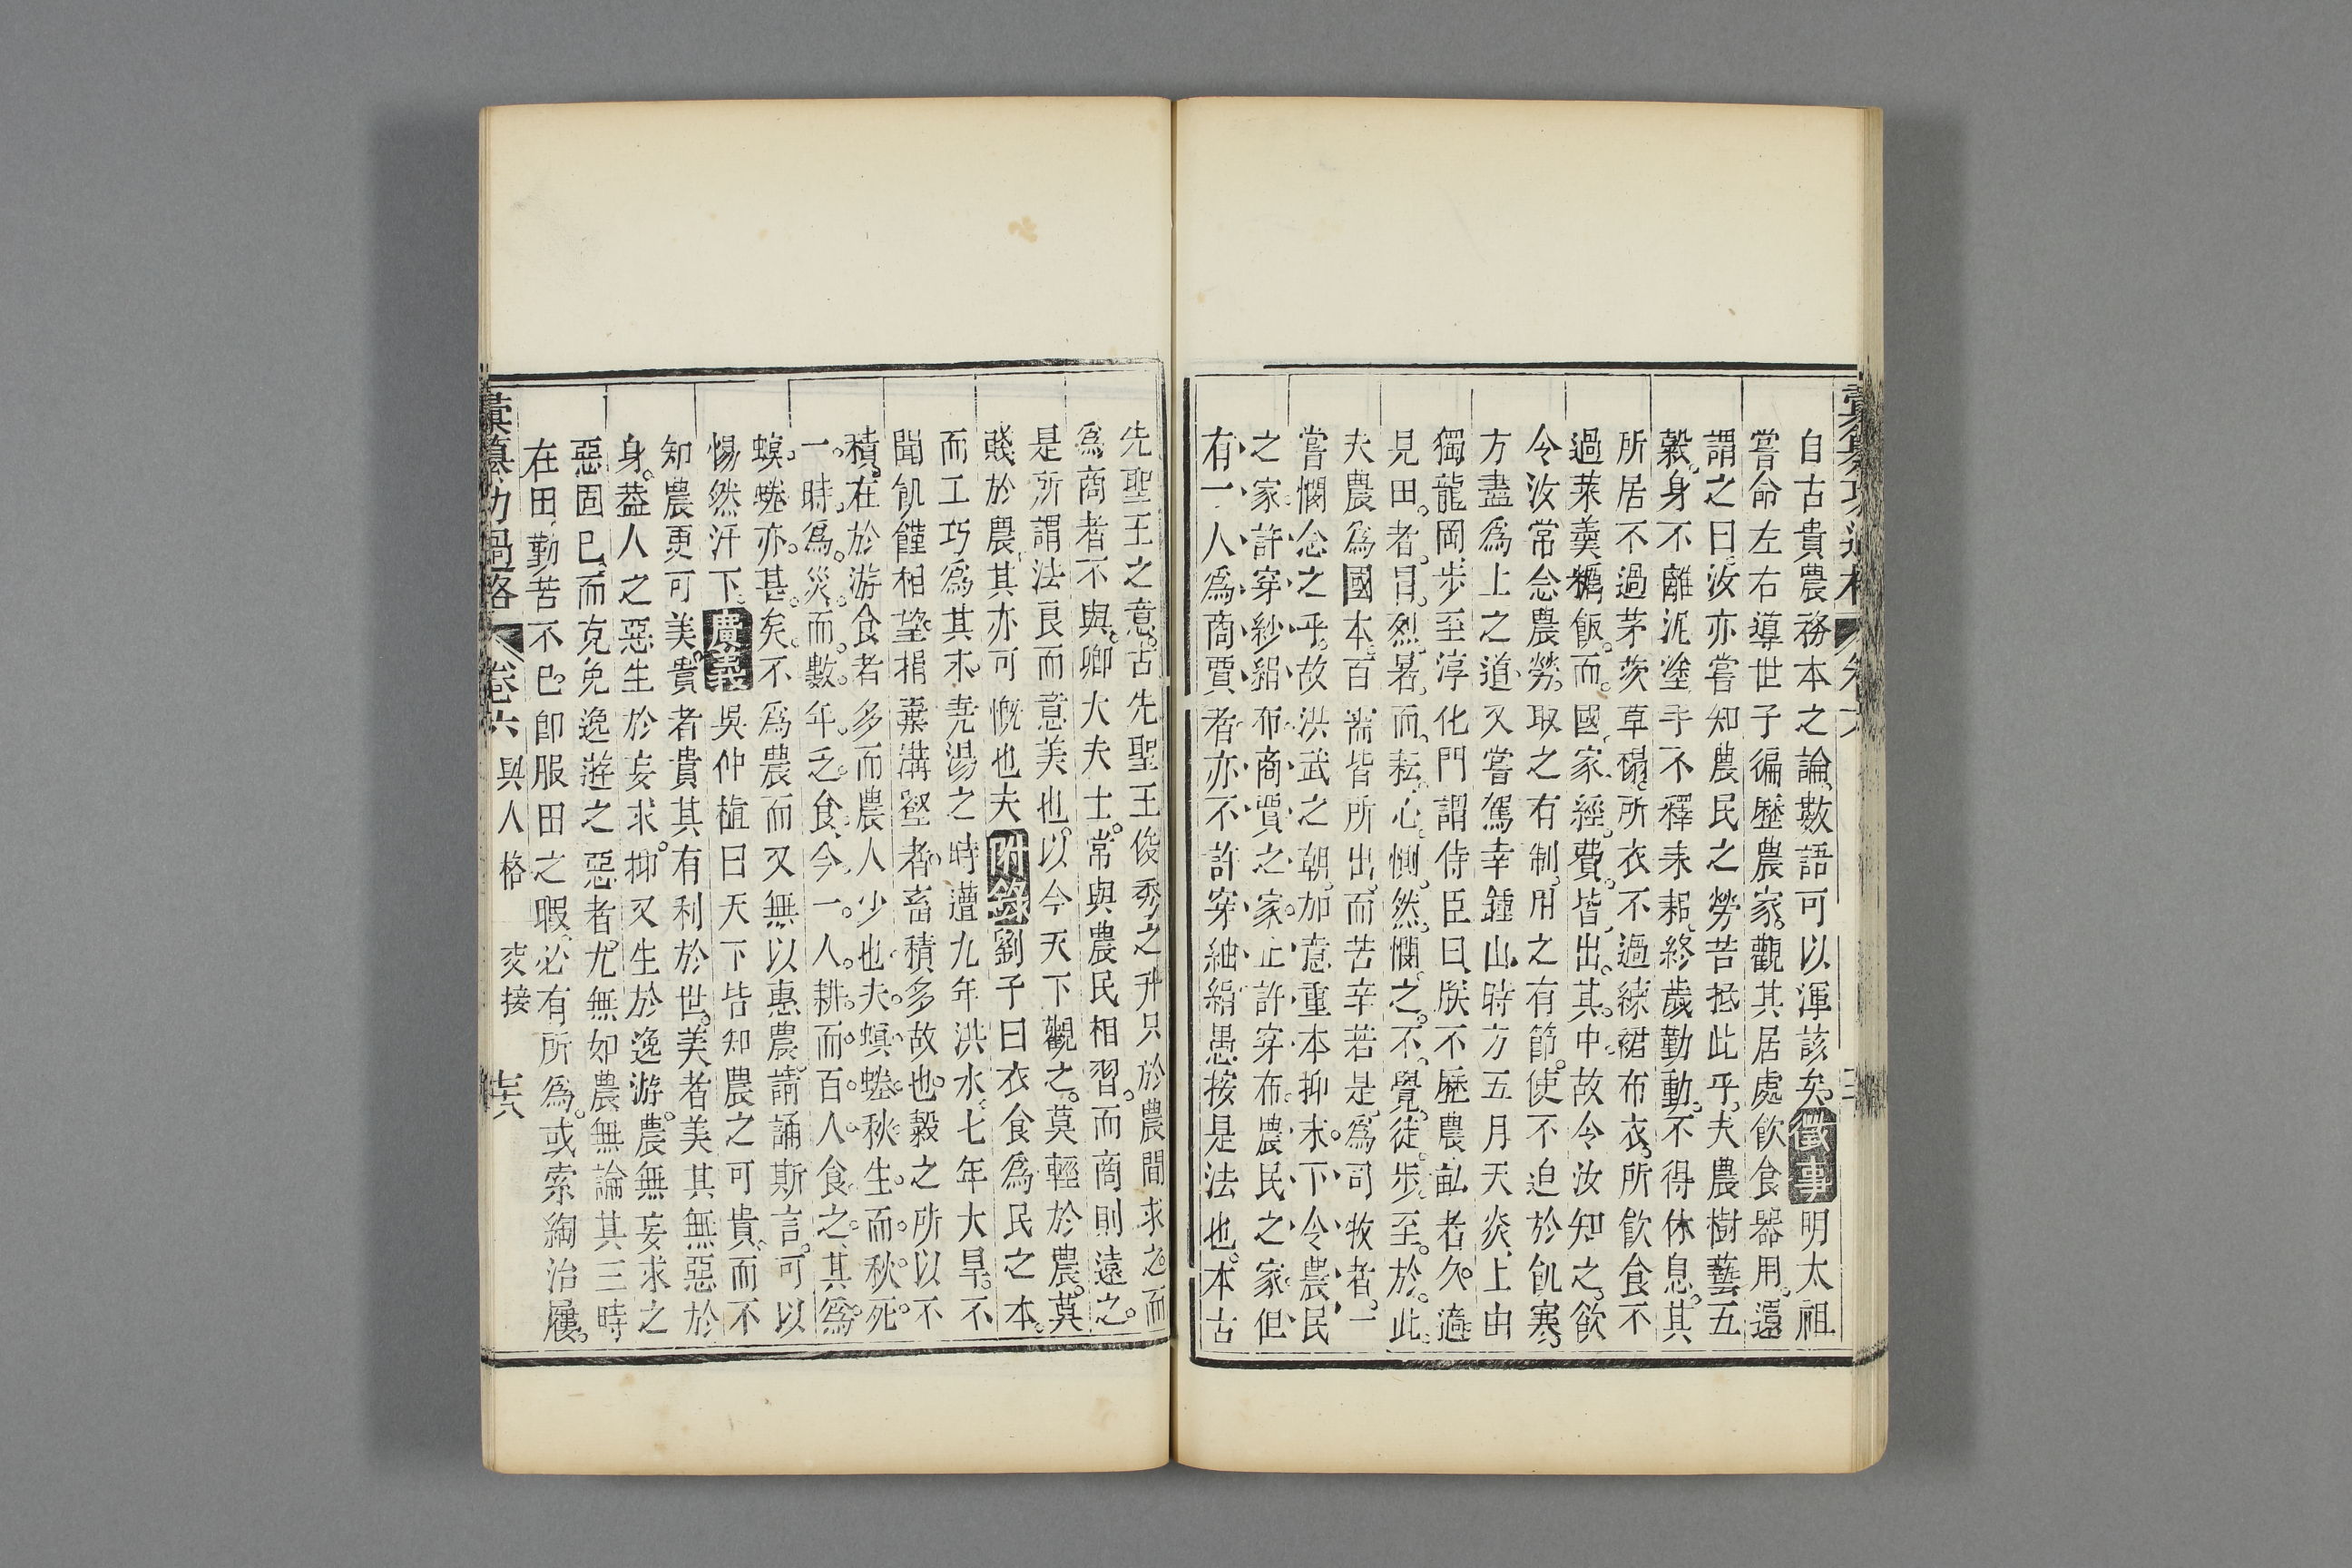 自古貴農務本之論數語可以渾該矣。徵事明太祖
嘗命左右導世子徧歷農家。觀其居處飲食器用。還
謂之曰。汝亦嘗知農民之勞苦抵此乎。夫農樹藝五
穀。身不離泥塗。手不釋耒耜。終歲勤動。不得休息。其
所居不過茅茨草榻。所衣不過練裙布衣。所飲食不
過菜羹糲飯。而國家經費。皆出其中。故令汝知之。飲
令汝常念農勞。取之有制。用之有節。使不迫於飢寒。
方盡爲上之道。又嘗駕幸鍾山。時方五月天炎。上由
獨龍岡。步至淳化門。謂侍臣曰。朕不歷農畝者久。適
見田者。冒烈暑而耘。心惻然憫之。不覺徒步至於此。
夫農爲國本。百需皆所出。而苦辛若是。爲司牧者。一
嘗憫念之乎。故洪武之朝。加意重本抑末。下令農民
之家許穿紗絹布。商賈之家。止許穿布。農民之家但
有一人爲商賈者。亦不許穿紬絹。愚按是法也。本古
先聖王之意。古先聖王俊秀之升。只於農間求之。而
爲商者不與。卿大夫士。常與農民相習。而商則遠之。
是所謂法良而意美也。以今天下觀之。莫輕於農。莫
賤於農。其亦可慨也夫附錄劉子曰衣食爲民之本。
而工巧爲其末。堯湯之時。遭九年洪水。七年大旱。不
聞飢饉相望。捐棄溝壑者。畜積多故也。穀之所以不
積。在於游食者多。而農人少也。夫螟螣秋生而秋死。
一時爲災。而數年乏食。今一人耕。而百人食之。其爲
螟螣亦甚矣。不爲農而又無以惠農。請誦斯言。可以
惕然汗下。廣義吳仲植曰天下皆知農之可貴。而不
知農更可美。貴者貴其有利於世。美者美其無惡於
身。葢人之惡生於妄求。抑又生於逸游。農無妄求之
惡固已。而克免逸遊之惡者。尤無如農。無論其三時
在田。勤苦不已。卽服田之暇。必有所爲。或索綯治屨。
彙纂功過格 卷六 與人格 交接